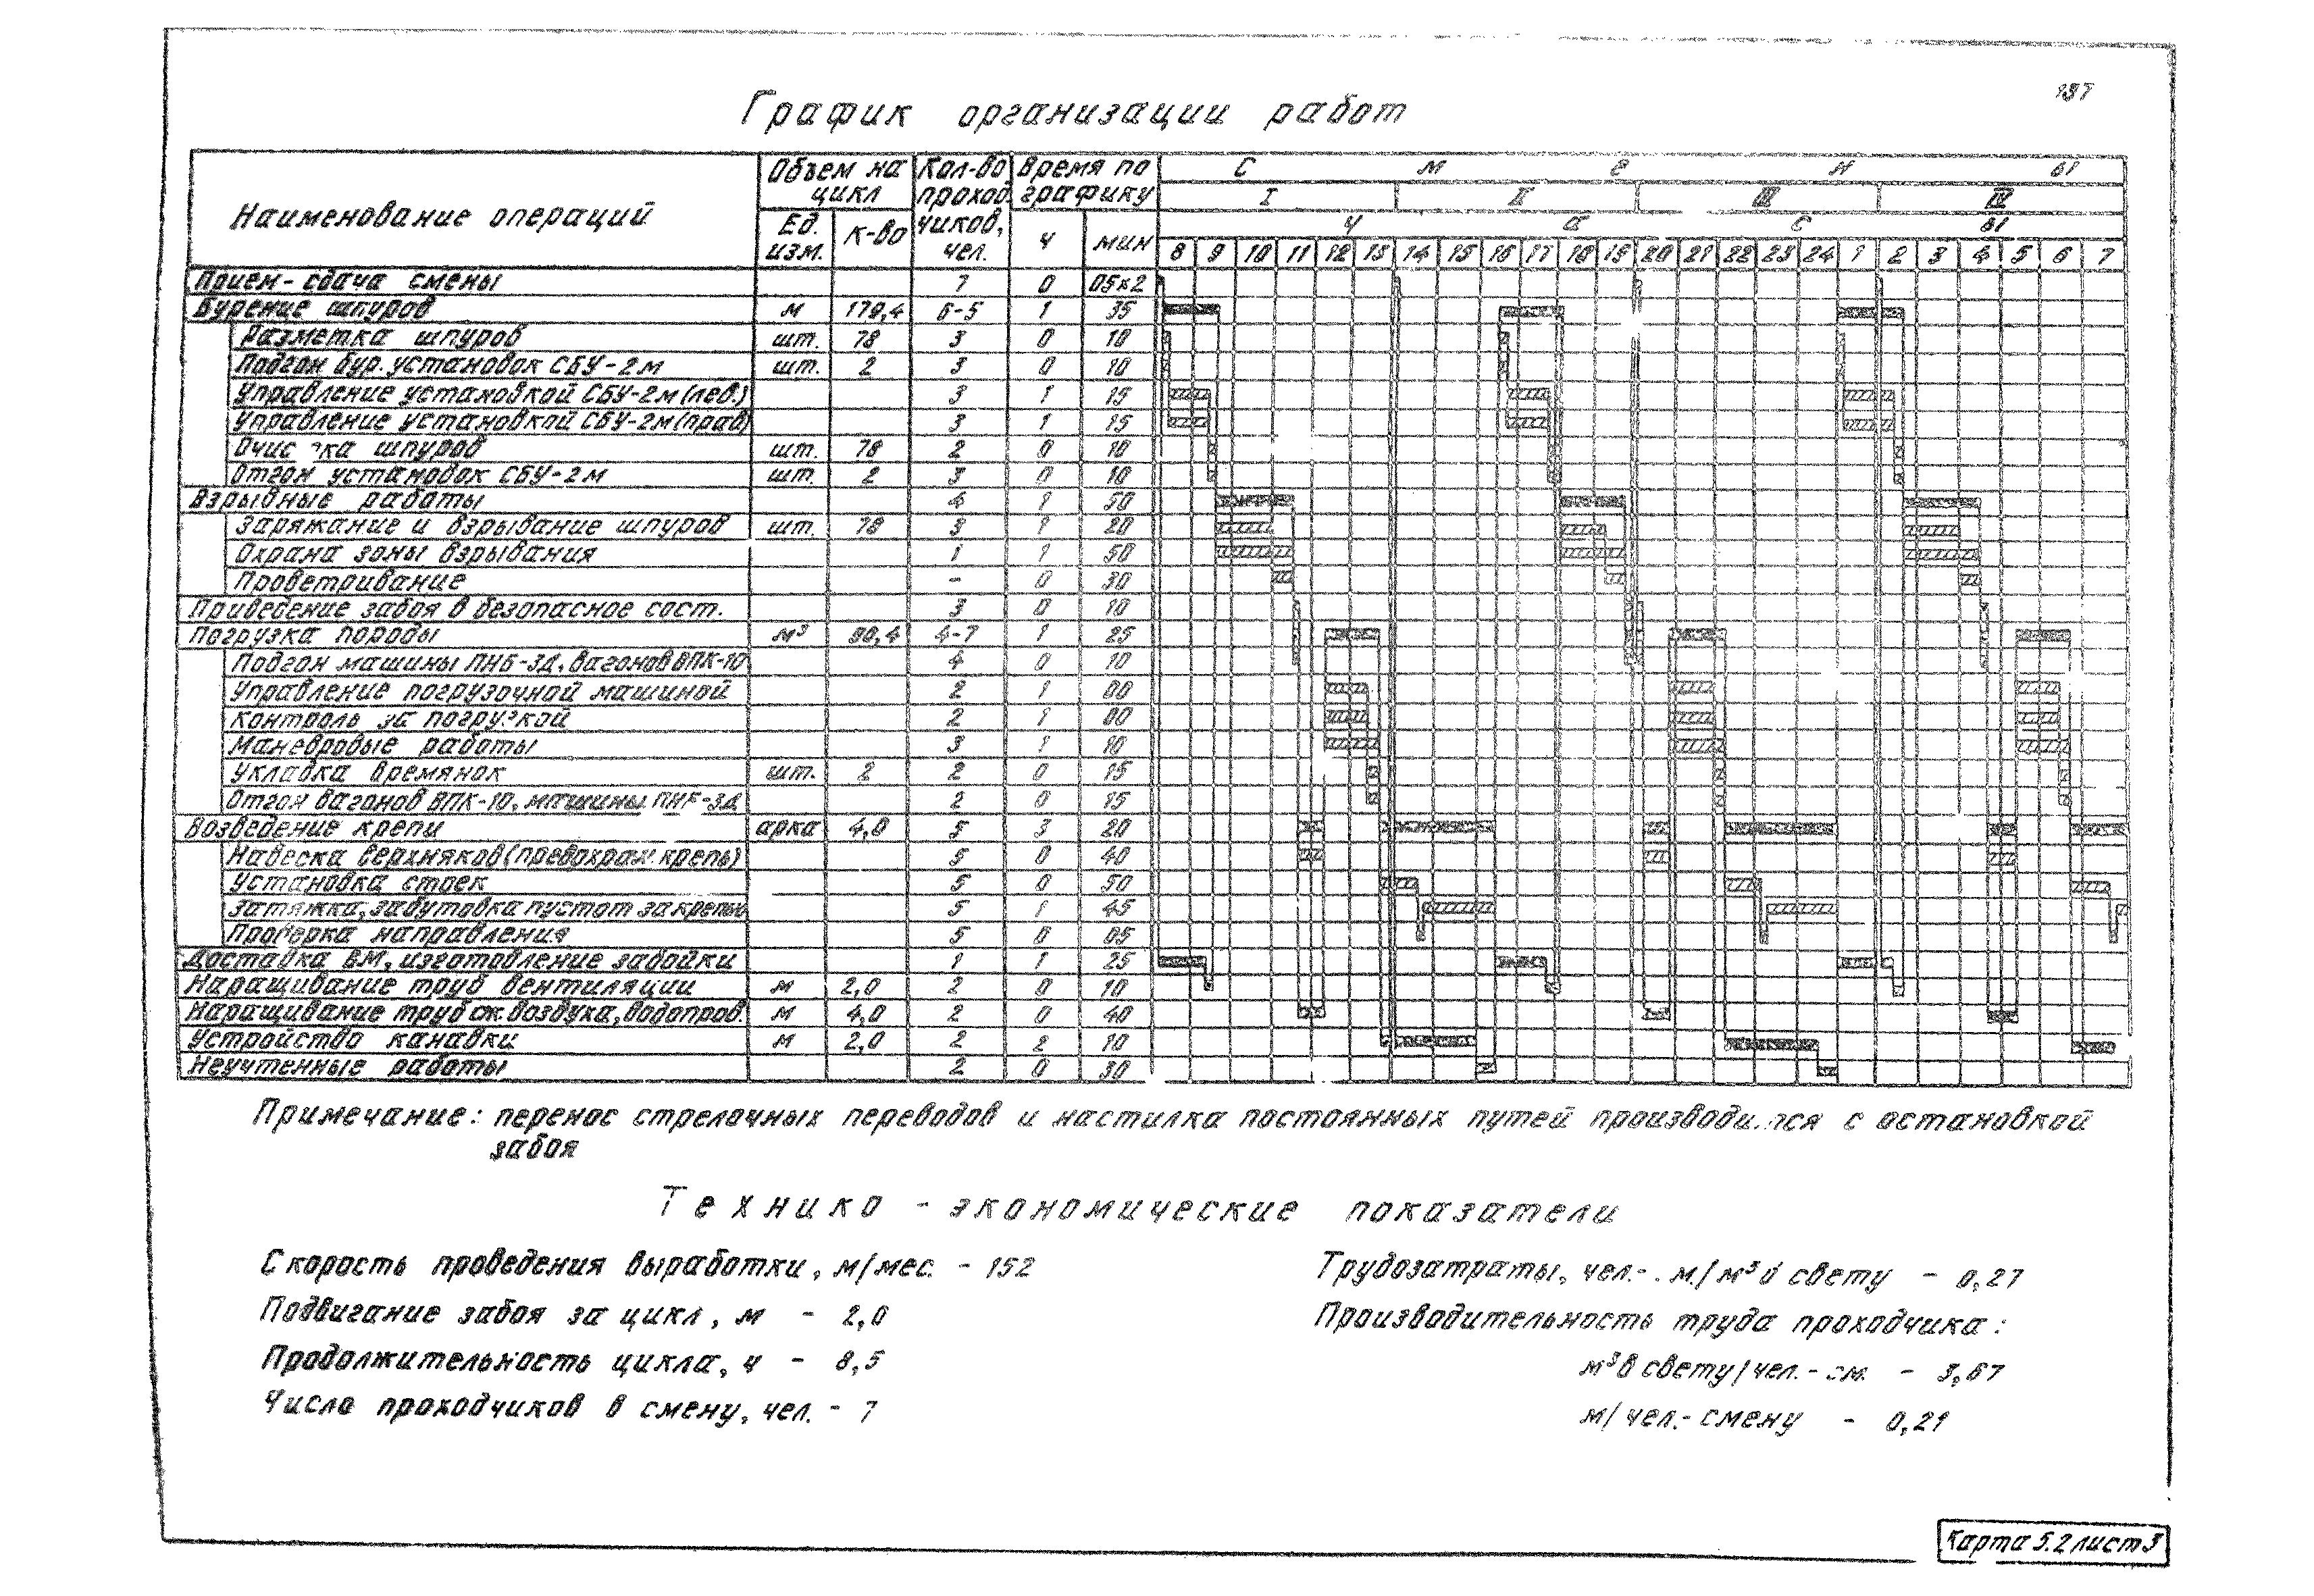 137
График организации работ
Наименование операций
Объем на цикл
Ед. изм.
К-во
Кол-во проход чиков, чел.
Время по графику
ч
мин
С м е н ы
I II III IV
Ч а с ы
8 9 10 11 12 13 14 15 16 17 18 19 20 21 22 23 24 1 2 3 4 5 6 7
Прием-сдача смены 7 0 05х2
Бурение шпуров м 179,4 6-5 1 35
Разметка шпуров шт. 78 3 0 10
Подгон бур. установок СБУ-2м шт. 2 3 0 10
Управление установкой СБУ-2м (лев.) 3 1 15
Управление установкой СБУ-2м (прав) 3 1 15
шпуров шт. 78 2 0 10
Отгон установок СБУ-2м шт. 2 3 0 10
Взрывные работы 4 1 50
Заряжание и взрывание шпуров шт. 78 3 1 20
Охрана зоны взрывания 1 1 50
Проветривание - 0 30
Приведение забоя в безопасное сост. 3 0 10
Погрузка породы м³ 90,4 4-7 1 25
Подгон машины ПНБ-3Д, вагонов ВПК-10 4 0 10
Управление погрузочной машиной 2 1 00
Контроль за погрузкой 2 1 00
Маневровые работы 3 1 10
Укладка времянок шт. 2 2 0 15
Отгон вагонов ВПК-10, машины ПНБ-3Д 2 0 15
Возведение крепи арка 4,0 5 3 20
Навеска верхняков (предохран. крепь) 5 0 40
Установка стоек 5 0 50
Затяжка, забутовка пустот за крепью 5 1 45
Проверка направления 5 0 05
Доставка ВМ, изготовление забойки 1 1 25
Наращивание труб вентиляции м 2,0 2 0 10
Наращивание труб сж. воздуха, водопров. м 4,0 2 0 40
Устройство канавки м 2,0 2 2 10
Неучтенные работы 2 0 30
Примечание: перенос стрелочных переводов и настилка постоянных путей с остановкой
забоя
Технико - экономические показатели
Скорость проведения выработки, м/мес. - 152
Подвигание забоя за цикл, м - 2,0
Продолжительность цикла, ч - 8,5
Число проходчиков в смену, чел. - 7
Трудозатраты, чел.- м./м³ в свету - 0,27
Производительность труда проходчика:
м³ в свету/чел.-см. - 3,67
м/чел.-смену - 0,21
Карта 5.2 лист 3